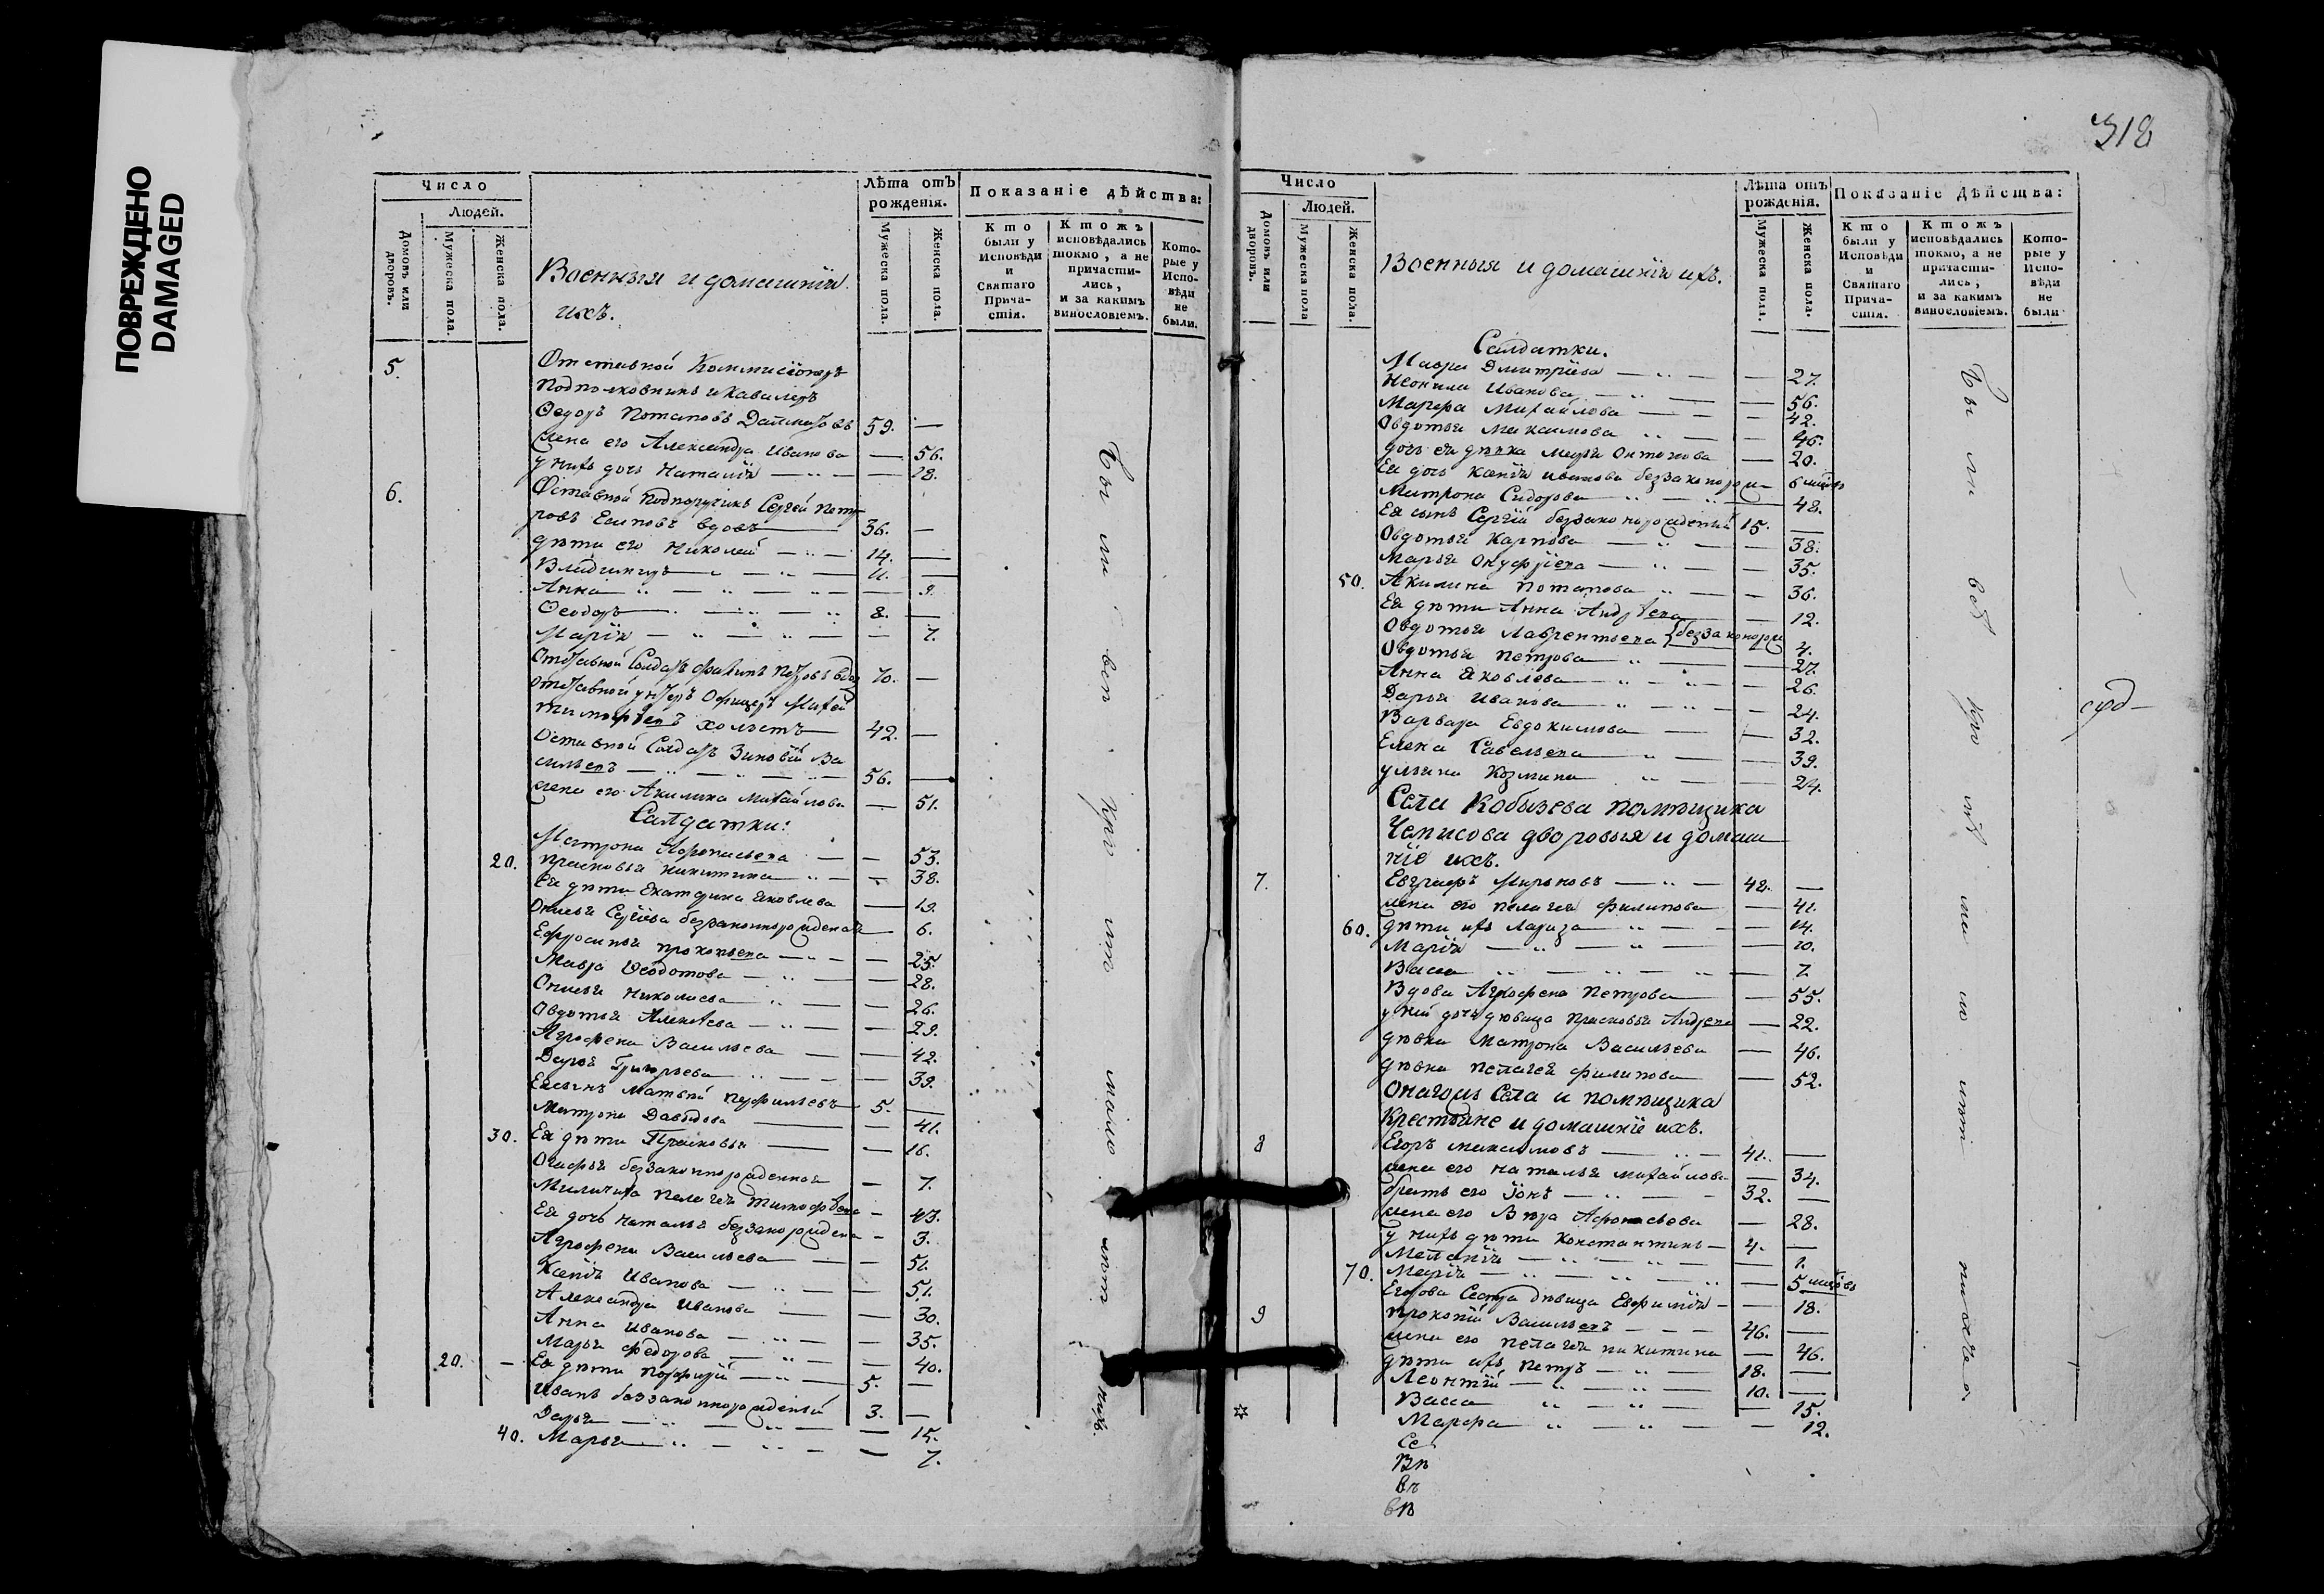 ПОВРЕЖДЕНО
DAMAGED
Число
Людей.
Домовъ или дворовъ.
Мужеска пола.
Женска пола.
Военныя и домашнiя
ихъ.
Лѣта отъ рожденiя.
Мужеска пола.
Женска пола.
Показанiе дѣйства:
Кто были у Исповѣди и Святаго Причастiя.
Ктожъ исповѣдались токмо, а не причастились, и за какимъ винословiемъ.
Которые у Исповѣди не были.
5. Отставной Коммисiонеръ
Подполковникъ и Кавалеръ
Ѳедоръ Потаповъ 59. —
жена его Александра Иванова — 56.
у нихъ дочь Наталiя — 18.
6. Отставной Подпоручикъ Сергей Пет
ровъ Есиповъ вдовъ 36. —
дѣти его Николай 14. —
Владимиръ 11. —
Анна — 9.
Ѳеодоръ 8. —
Марiя — 7.
Отставной Солдатъ Петровъ вдовъ 70. —
Отставной унтеръ Офицеръ
Тимофѣевъ холостъ 42. —
Отставной Солдатъ Зиновiй Ва
сильевъ 56. —
жена его Акилина Михайлова — 51.
Салдатки:
Матрона Афонасьева — 53.
20. Прасковья Никитина — 38.
Ея дѣти Екатерина Яковлева — 19.
Онисья Сергiева безаконнорожденая — 6.
Ефросинья Прокопьева — 25.
Мавра Ѳеодотова — 28.
Онисья Николаева — 26.
Овдотья Алексѣева — 29.
Агрофена Васильева — 42.
Дарья Григорьева — 39.
Ея сынъ Матвей Перфильевъ 5. —
Матрона Давыдова — 41.
30. Ея дѣти Прасковья — 16.
Огафья безаконнорожденная — 7.
Пелагея Тимофѣева — 43.
Ея дочь Наталья безаконрожден — 3.
Агрофена Васильева — 51.
Ксенiя Иванова — 51.
Александра Иванова — 30.
Анна Иванова — 35.
Марья Федорова — 40.
20. — Ея дѣти Порфирiй 5. —
Иванъ безаконнорожденый 3. —
Дарья — 15.
40. Марья — 7.
Были вси
318
Число
Людей.
Домовъ или дворовъ.
Мужеска пола
Женска пола.
Военныя и домашнiя ихъ.
Лѣта отъ рожденiя.
Мужеска пола.
Женска пола.
Показанiе Дѣйства:
Кто были у Исповѣди и Святаго Причастiя.
Ктожъ исповѣдались токмо, а не причастились, и за какимъ винословiемъ.
Которые у Исповѣди не были
Салдатки.
Мавра Дмитрiева — 27.
Неонила Иванова — 56.
Марфа Михайлова — 42.
Овдотья Максимова — 46.
дочь ея дѣвка Марья Онтонова — 20.
Ея дочь Ксенiя Иванова безаконорож — 6
Матрона Сидорова — 48.
Ея сынъ Сергiй безаконорожденый 15. —
Овдотья Карпова — 38.
Марья Онуфрiева — 35.
50. Акилина Потапова — 36.
Ея дѣти Анна Андрѣева — 12.
Овдотья Лаврентьева безаконорож 4.
Овдотья Петрова — 27.
Анна Яковлева — 26.
Дарья Иванова — 24.
Варвара Евдокимова — 32.
Елена Савельева — 39.
Ульяна Козмина — 24.
Села Кобызева помѣщика
Чемисова дворовыя и домаш
нiе ихъ.
7. Евграфъ Мироновъ 48. —
жена его Пелагея Филипова — 41.
60. дѣти ихъ — 14.
Марiя — 10.
Васса — 7.
Вдова Агрофена Петрова — 55.
у ней дочь дѣвица Прасковья Андреева — 22.
дѣвка Матрона Васильева — 46.
дѣвка Пелагея Филипова — 52.
Онагожъ Села и помѣщика
Крестьяне и домашнiе ихъ.
8 Егоръ Максимовъ 41. —
жена его Наталья Михайлова — 34.
братъ его Iонъ 32. —
жена его Вѣра Афонасьева — 28.
У нихъ дѣти Константинъ 4. —
Меланiя — 1.
70. Марiя — 5
Егорова Сестра дѣвица Евфимiя — 18.
9 Прокопiй Васильевъ 46. —
жена его Пелагея Никитина — 46.
дѣти ихъ Петръ 18. —
Леонтiй 10. —
Васса — 15.
Марфа — 12.
Се
Вп
въ
вп